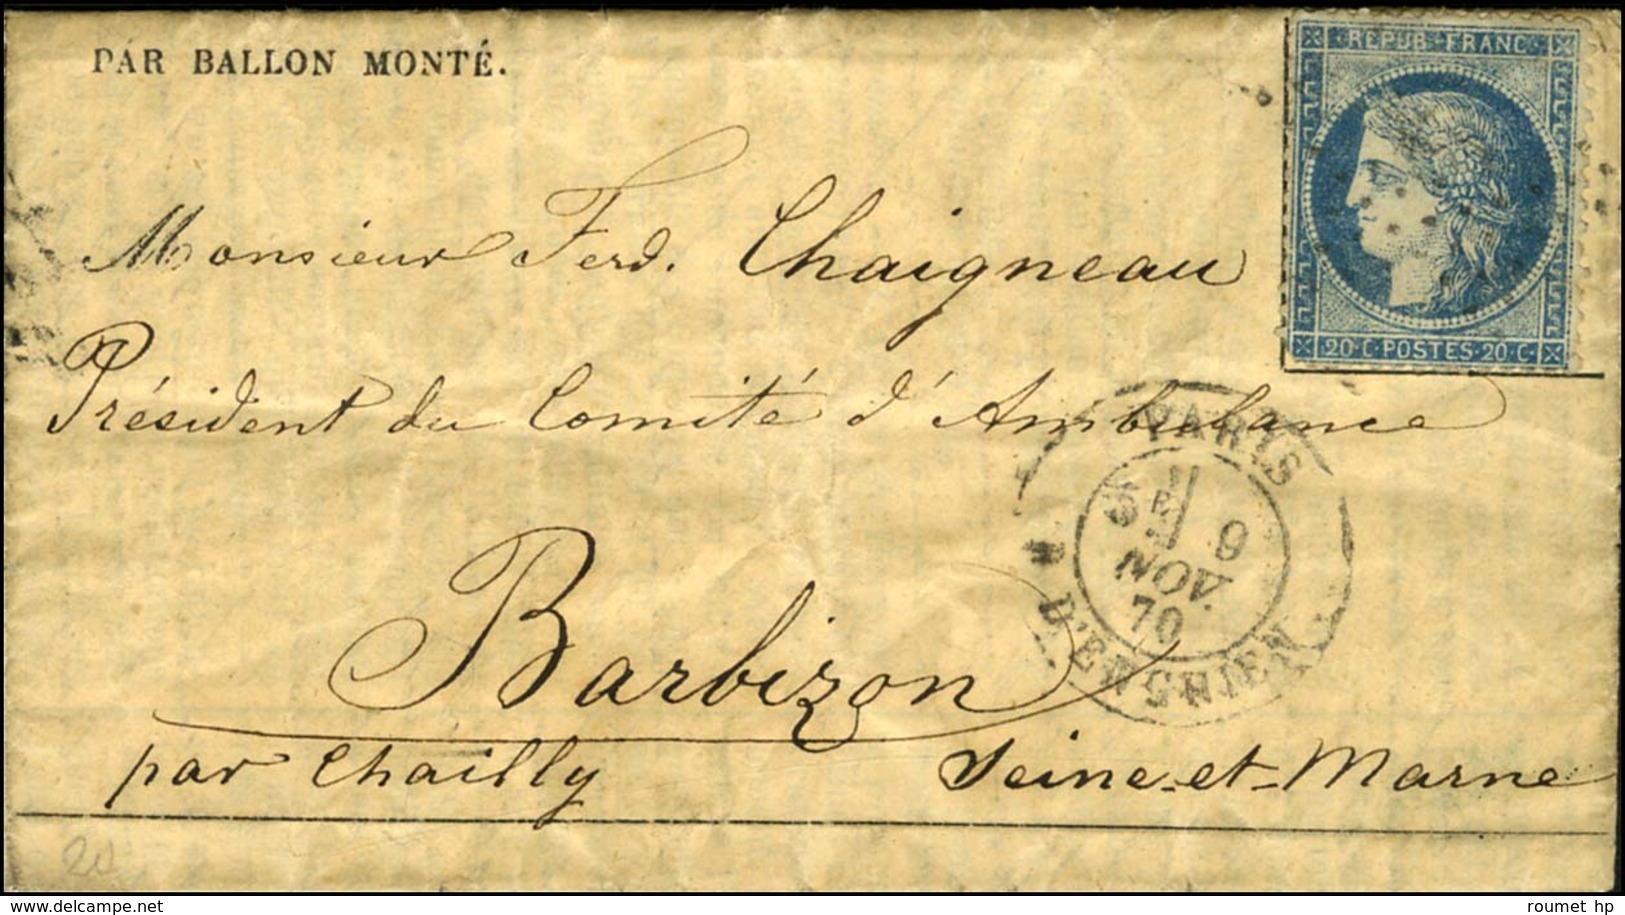 PAR BALLON MONTÉ.
REPUB. FRANC.
20·C·POSTES·20·C·
Monsieur Ferd. Chaigneau
Président du Comité d'Ambulance
PARIS
5E
9
NOV.
70
R. D'ENGHIEN
Barbizon
par Chailly Seine-et-Marne
20
www.delcampe.net
roumet hp